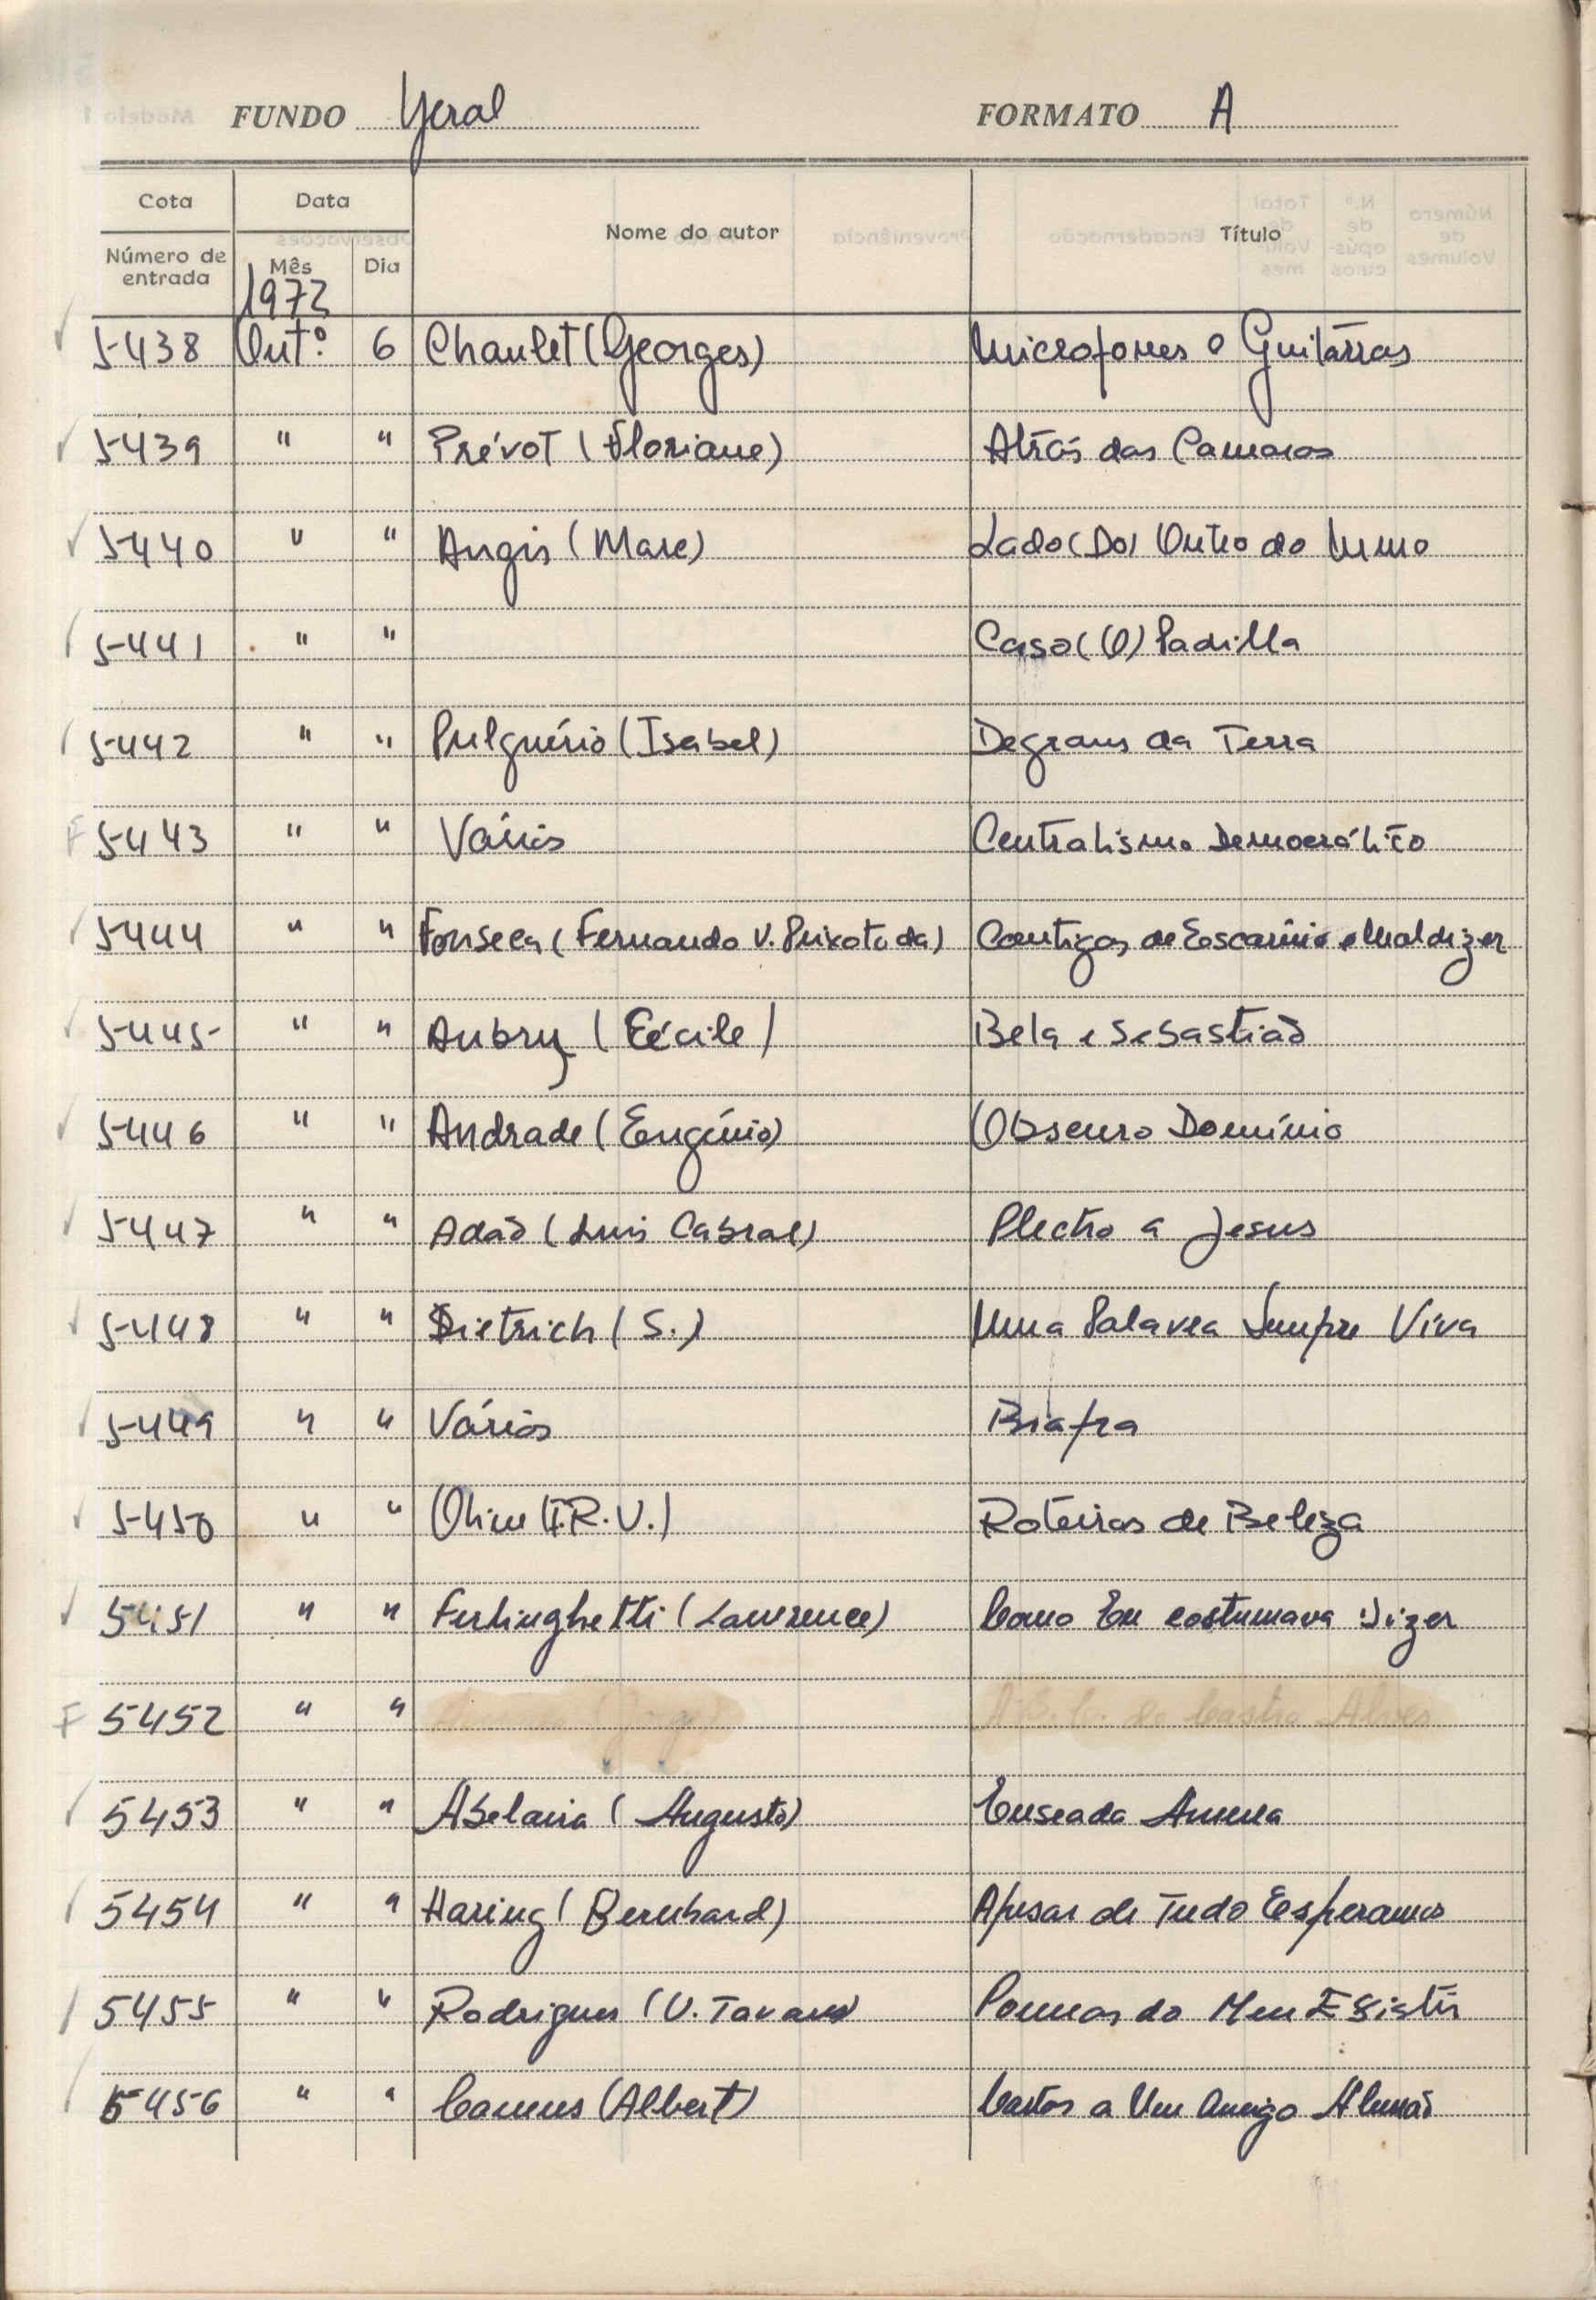 FUNDO Geral FORMATO A
Cota Data Nome do autor Título
Número de entrada Mês Dia
1972
5438 Outº. 6 Chaulet (Georges) Microfones e Guitarras
5439 " " Prévot (Floriane) Atrás das Camaras
5440 " " Angis (Marc) Lado (Do) Outro do Muro
5441 " " Caso (O) Padilla
5442 " " Pulquério (Isabel) Degraus da Terra
F 5443 " " Vários Centralismo Democrático
5444 " " Fonseca (Fernando V. Peixoto da) Cantigas de Escarnio e Maldizer
5445 " " Aubry (Cécile) Bela e Sebastião
5446 " " Andrade (Eugénio) Obscuro Domínio
5447 " " Adão (Luis Cabral) Plectro a Jesus
5448 " " Dietrich (S.) Uma Palavra Sempre Viva
5449 " " Vários Biafra
5450 " " (F.R.V.) Roteiros de Beleza
5451 " " Ferlinghetti (Lawrence) Como Eu costumava Dizer
F 5452 " " A.B.C. de Castro Alves
5453 " " Abelaira (Augusto) Enseada Amena
5454 " " Haring (Bernhard) Apesar de Tudo Esperamos
5455 " " Rodrigues (U. Tavares) Poemas do Meu Existir
5456 " " Camus (Albert) Cartas a Um Amigo Alemão